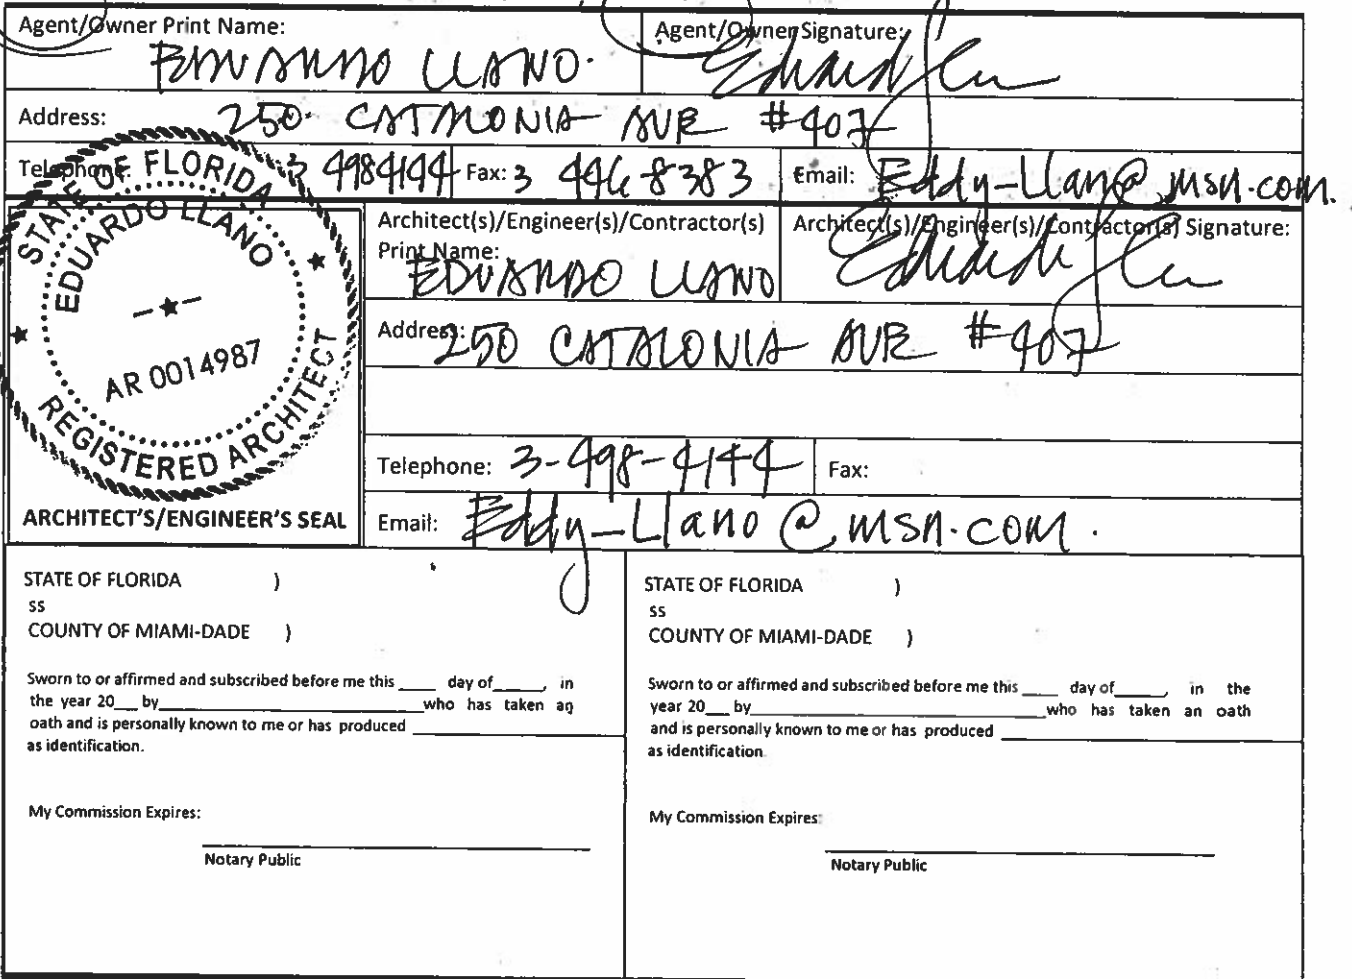 Agent/Owner Print Name: EDUARDO LLANO.
Agent/Owner Signature:
Address: 250 CATALONIA AVE #407
Telephone: 3 4984144 Fax: 3 446-8383 Email: Eddy-Llano@msn.com.
STATE OF FLORIDA
EDUARDO LLANO
AR 0014987
REGISTERED ARCHITECT
ARCHITECT'S/ENGINEER'S SEAL
Architect(s)/Engineer(s)/Contractor(s)
Print Name: EDUARDO LLANO
Architect(s)/Engineer(s)/Contractor(s) Signature:
Address: 250 CATALONIA AVE #407
Telephone: 3-498-4144 Fax:
Email: Eddy-Llano@msn.com.
STATE OF FLORIDA )
ss
COUNTY OF MIAMI-DADE )
Sworn to or affirmed and subscribed before me this ____ day of _____, in
the year 20__ by__________________________who has taken an
oath and is personally known to me or has produced ____________________
as identification.
My Commission Expires:
Notary Public
STATE OF FLORIDA )
ss
COUNTY OF MIAMI-DADE )
Sworn to or affirmed and subscribed before me this ____ day of _____, in the
year 20__ by__________________________who has taken an oath
and is personally known to me or has produced ____________________
as identification.
My Commission Expires:
Notary Public